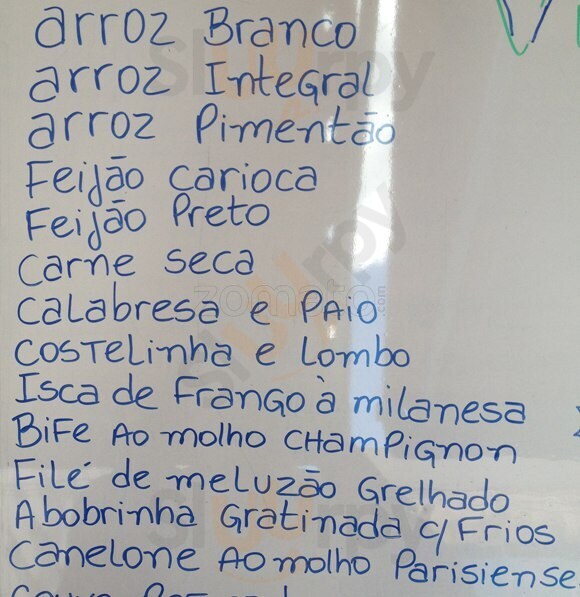 arroz Branco
arroz Integral
arroz Pimentão
Feijão carioca
Feijão Preto
carne seca
calabresa e PAIO
costelinha e Lombo
Isca de Frango à milanesa
Bife Ao molho CHamPiGnon
Filé de meluzão Grelhado
Abobrinha Gratinada c/ Frios
Canelone Ao molho Parisiense